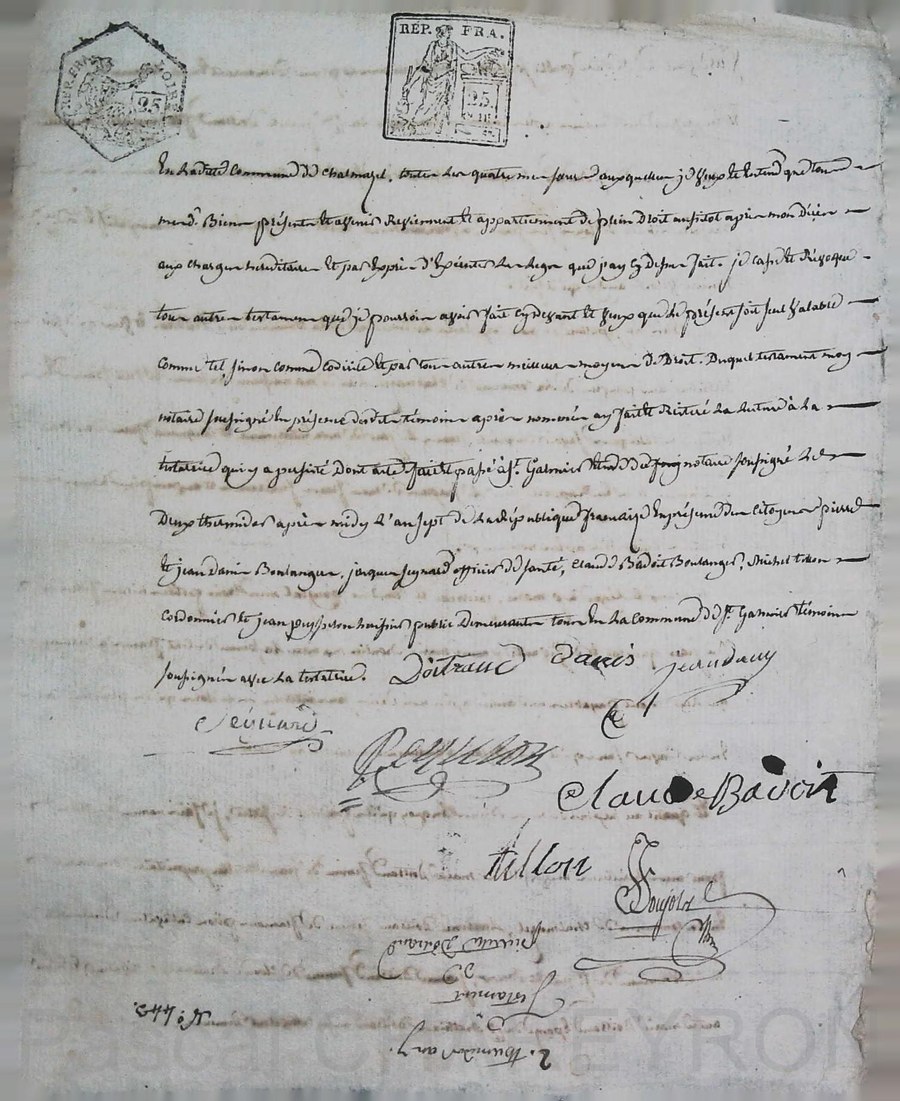 REP. FRA. LOIRE
25
REP. FRA.
25
En ladite Commune de Chalmazel, toutes les quatre mes sœurs auxquelles je veux et entend que tous
mesd. Biens présents et avenir Reviennent et appartiennent de plein Droit aussitot après mon Décès
aux charges hereditaires et par exprès d'Exécuter les legs que j'ay cy dessus fait. je casse et Révoque
tous autres testaments que je pourrois avoir fait cy devant et veux que le présent soit seul valable
comme tel, sinon comme codicile et par tous autres meilleurs moyens de Droit. Duquel testament moy
notaire soussigné En présence desdits témoins après nommés ay fait et Reiteré la lecture à la
testatrice qui y a persisté Dont acte fait et passé à St. Galmier Etude du notaire soussigné le
Deux thermidor après midy L'an sept de la République française En présence des Citoyens pierre
et jean Danis Boulangers, jacques Seynard officier de santé, Claude Badoit Boulanger, Michel tillon
Cordonnier et jean peysson huissier public Demeurants tous En la Commune de St. Galmier témoins
soussignés avec la testatrice. Doitrand Danis jean dany
Seynard
Peysson
claude Badoit
tillon
Poujols
2. thermidor an 7.
Testament
De
Doitrand
No. 442.
Pascal CHAMBEYRON